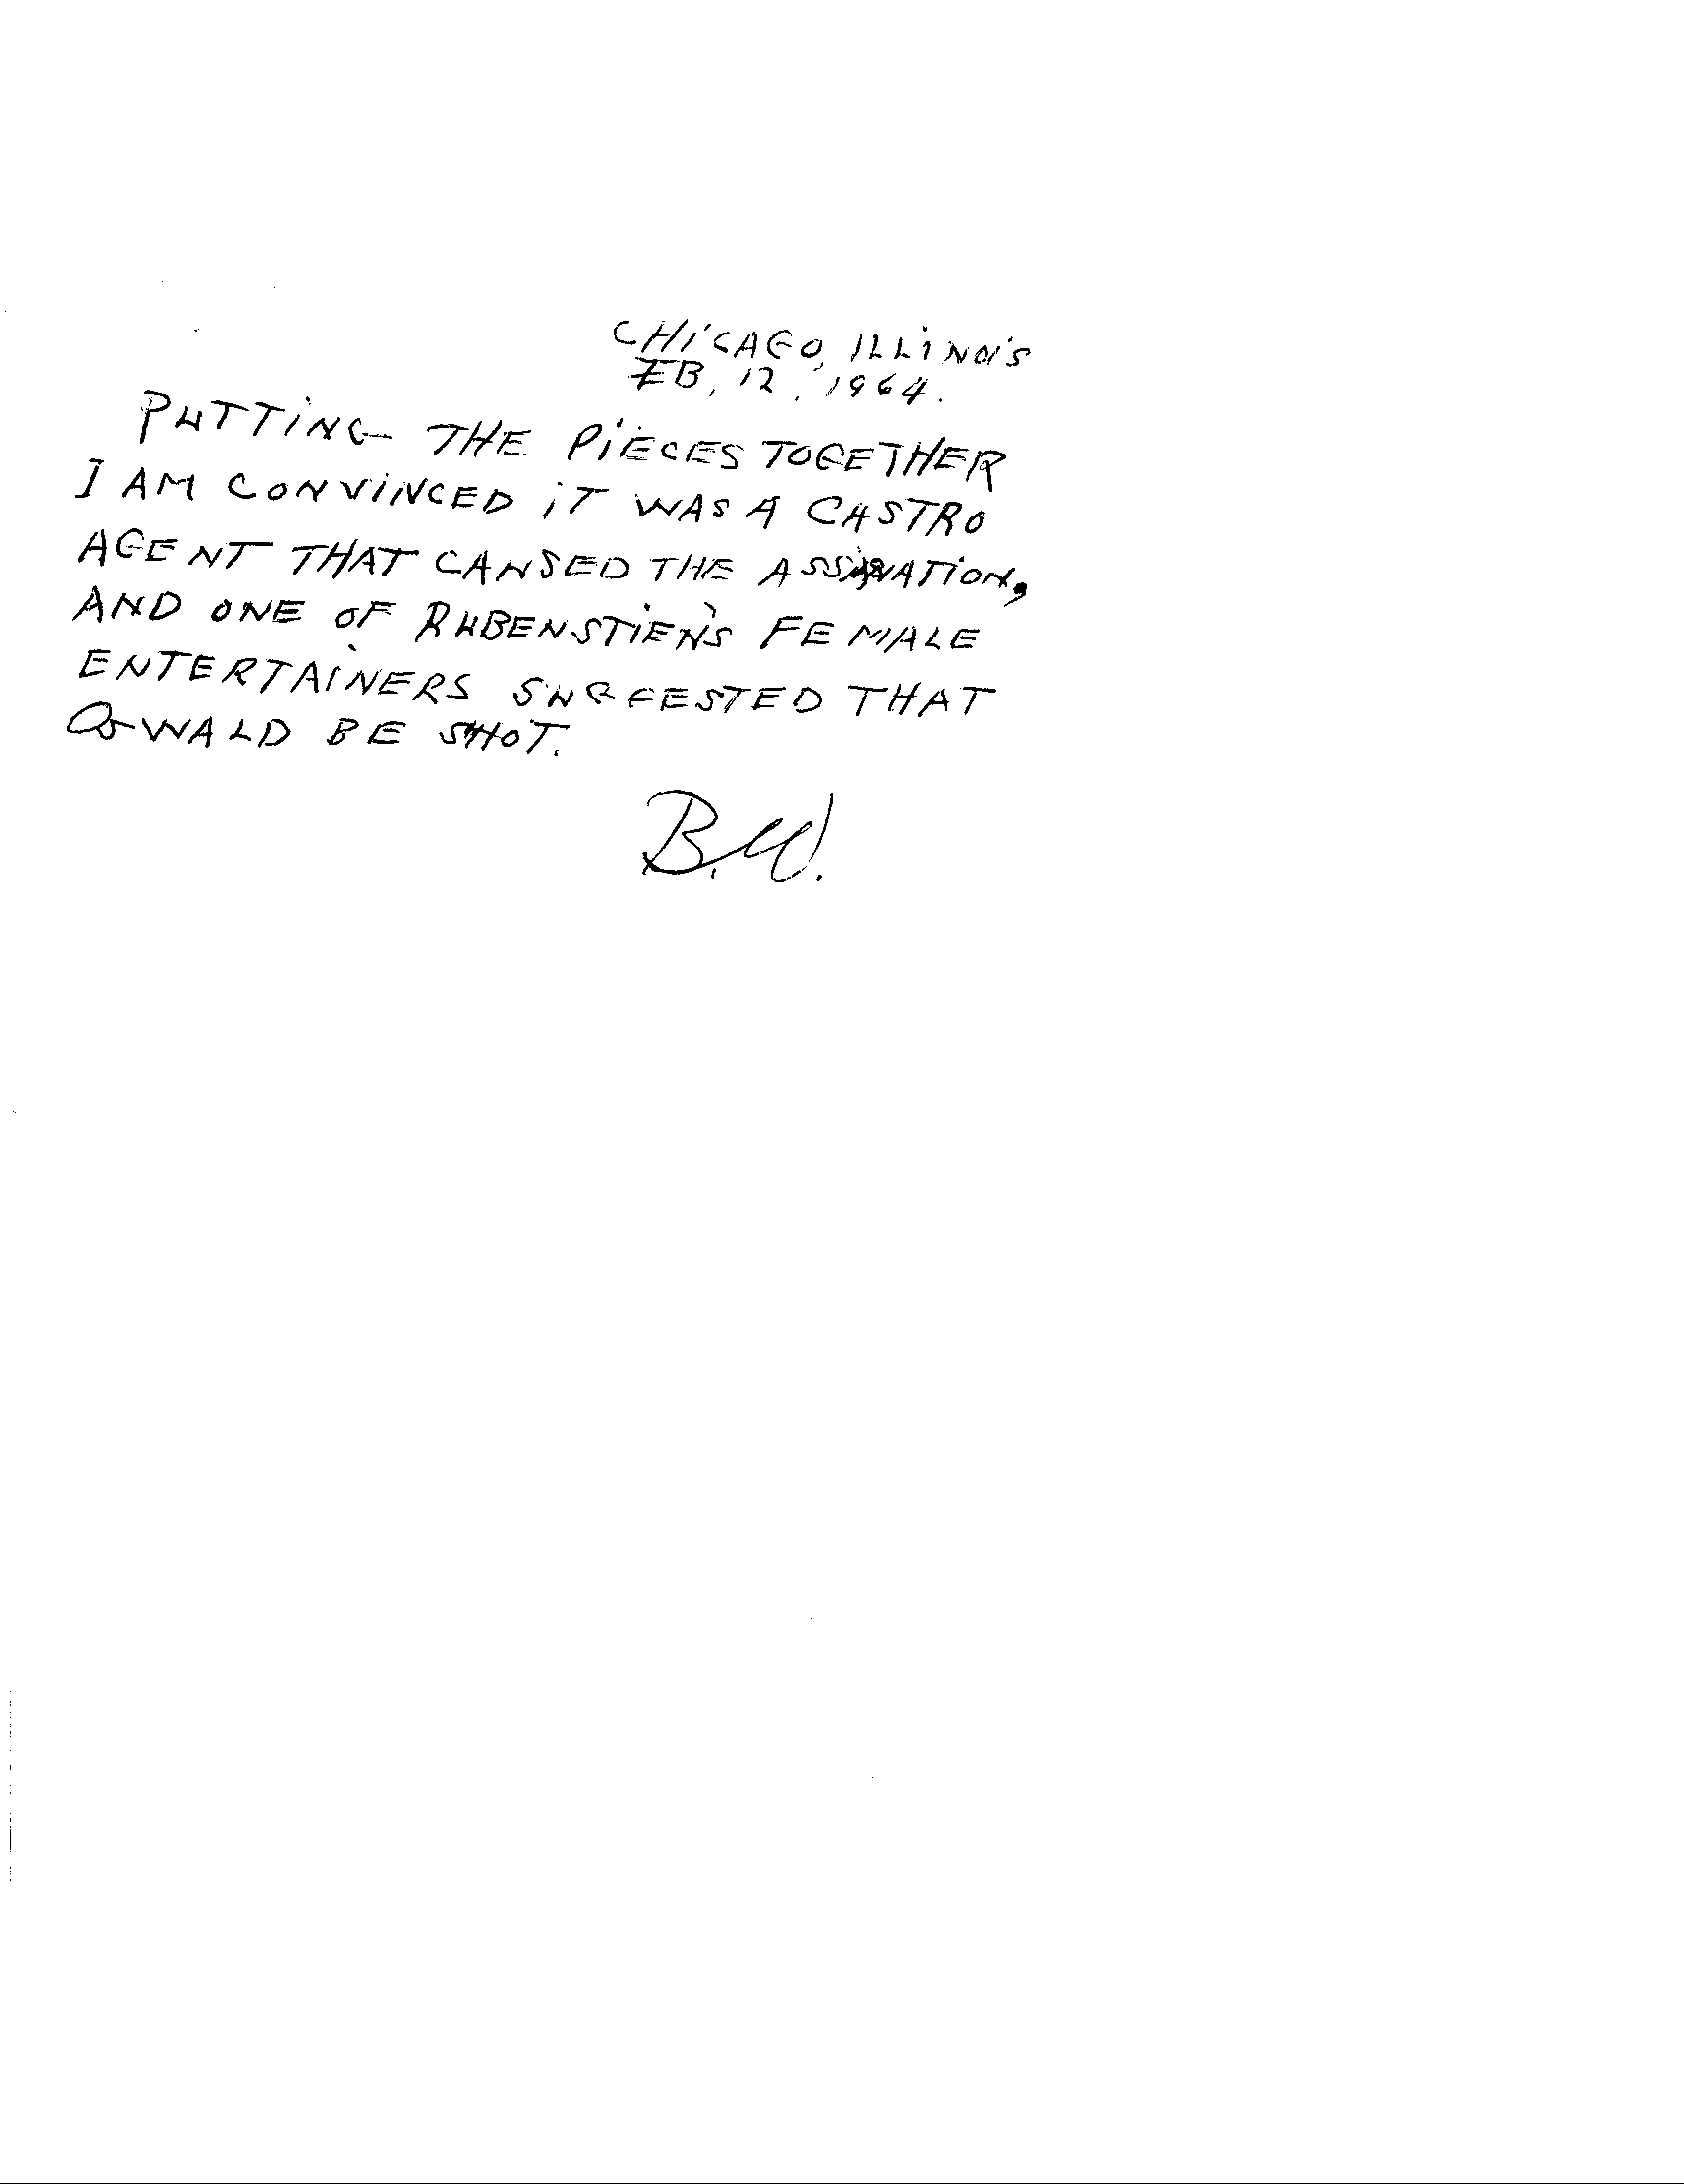 CHICAGO, ILLINOIS
FEB, 12, 1964.
PUTTING THE PIECES TOGETHER
I AM CONVINCED IT WAS A CASTRO
AGENT THAT CAUSED THE ASSINATION,
AND ONE OF RUBENSTIEN'S FEMALE
ENTERTAINERS SUGGESTED THAT
OSWALD BE SHOT.
B.W.